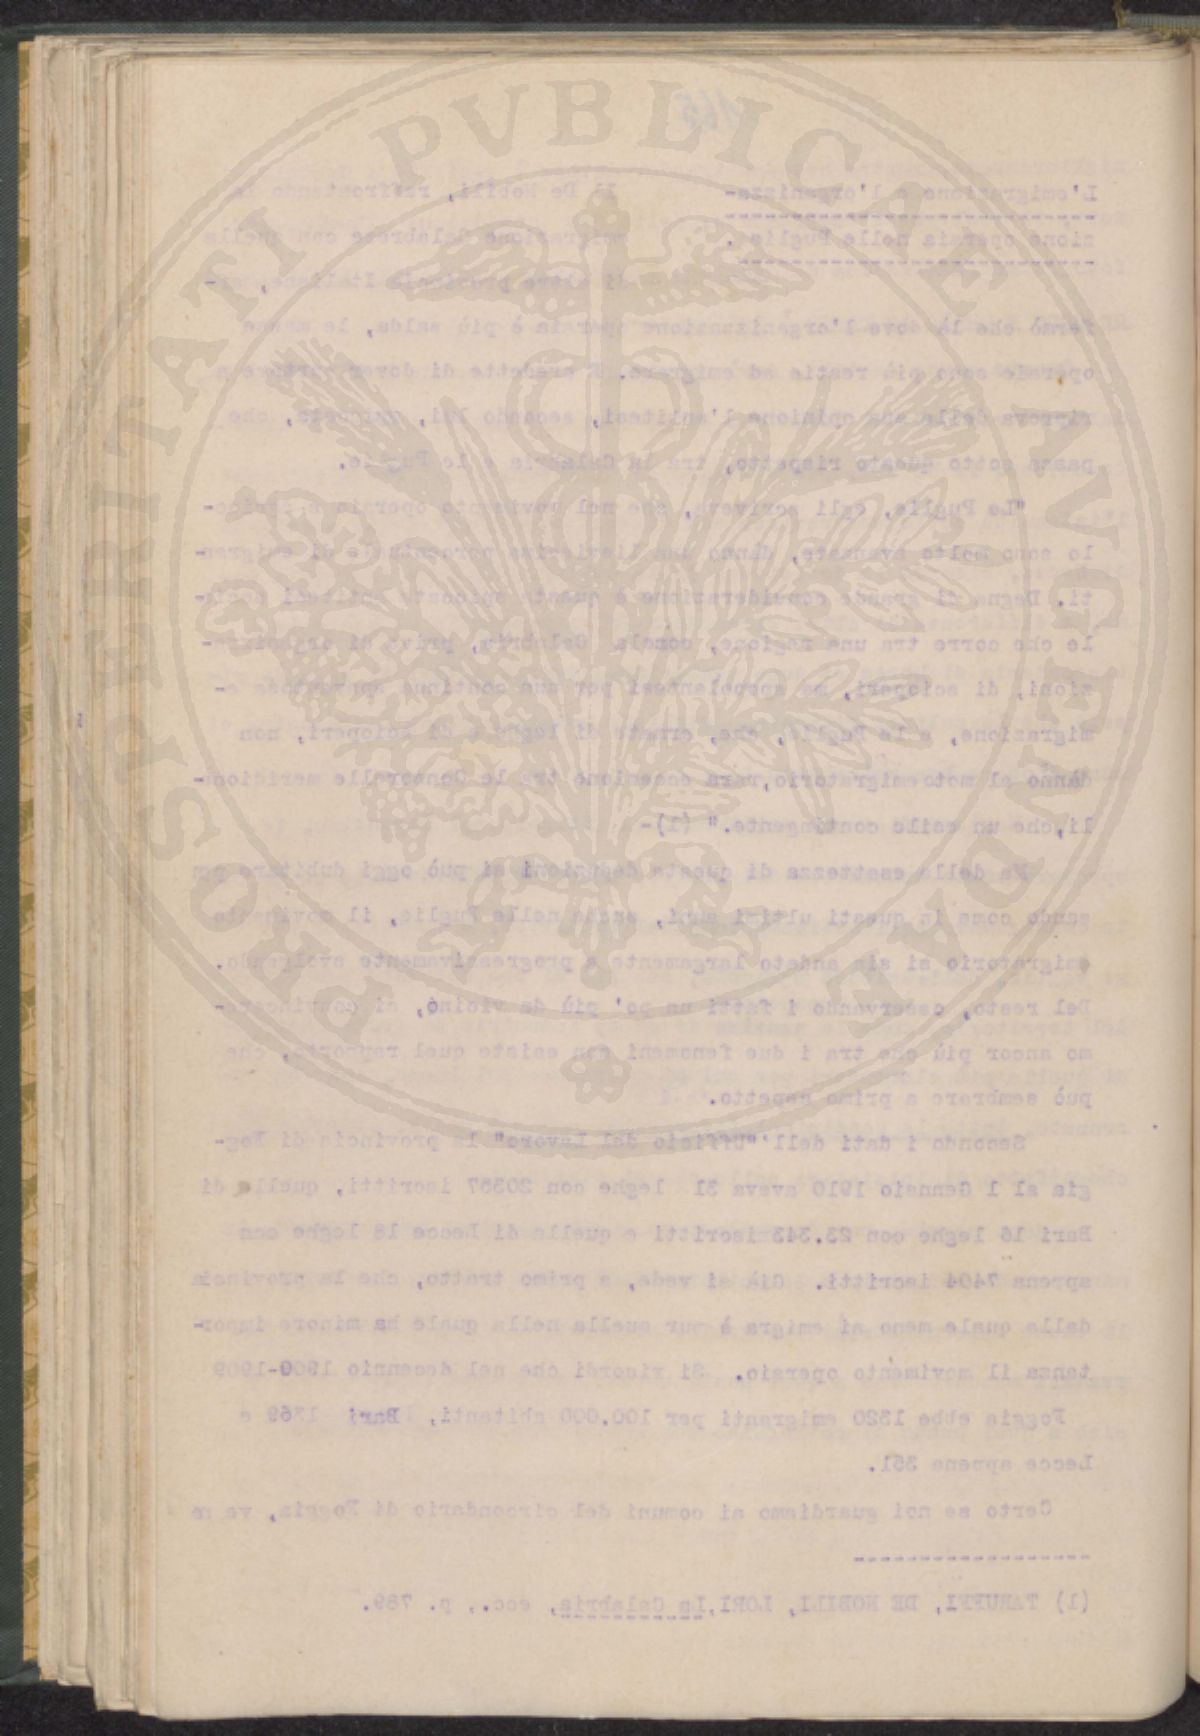 PROSPERITATI PVBLICAE AVGENDAE
165
L'emigrazione e l'organizza-
zione operaia nelle Puglie.
Il De Nobili, raffrontando la
emigrazione Calabrese con quella
di altre provincie Italiane, af-
fermò che là dove l'organizzazione operaia è più salda, le masse
operaie sono più restie ad emigrare. E credette di dover portare a
riprova della sua opinione l'antitesi, secondo lui, che
passa sotto questo rispetto, tra la Calabria e le Puglie.
"Le Puglie, egli scriveva, che nel movimento operaio e
lo sono molto avanzate, danno una lievissima percentuale di emigran-
ti. Degna di grande considerazione è questa spiccata antitesi socia-
le che corre tra una regione, come la Calabria, priva di organizza-
zioni, di scioperi, ma spopolantesi per una continua spaventosa e-
migrazione, e le Puglie, che, ornate di leghe e di scioperi, non
danno al moto emigratorio, rara eccezione tra le Consorelle meridiona-
li, che un esile contingente." (1)-
Ma della esattezza di queste deduzioni si può oggi dubitare pen
sando come in questi ultimi anni, anche nelle Puglie, il movimento
emigratorio si sia andato largamente e progressivamente svolgendo.
Del resto, osservando i fatti un po' più da vicino, ci convincere-
mo ancor più che tra i due fenomeni non esiste quel rapporto, che
può sembrare a primo aspetto.
Secondo i dati dell'"Ufficio del Lavoro" la provincia di Fog-
gia al 1 Gennaio 1910 aveva 31 leghe con 20357 iscritti, quella di
Bari 16 leghe con 23.343 iscritti e quella di Lecce 18 leghe con
appena 7404 iscritti. Già si vede, a primo tratto, che la provincia
dalla quale meno si emigra è pur quella nella quale ha minore impor-
tanza il movimento operaio. Si ricordi che nel decennio 1900-1909
Foggia ebbe 1320 emigranti per 100.000 abitanti, Bari 1369 e
Lecce appena 351.
Certo se noi guardiamo ai comuni del circondario di Foggia, ve ne
(1) TARUFFI, DE NOBILI, LORI, La Calabria, ecc., p. 789.